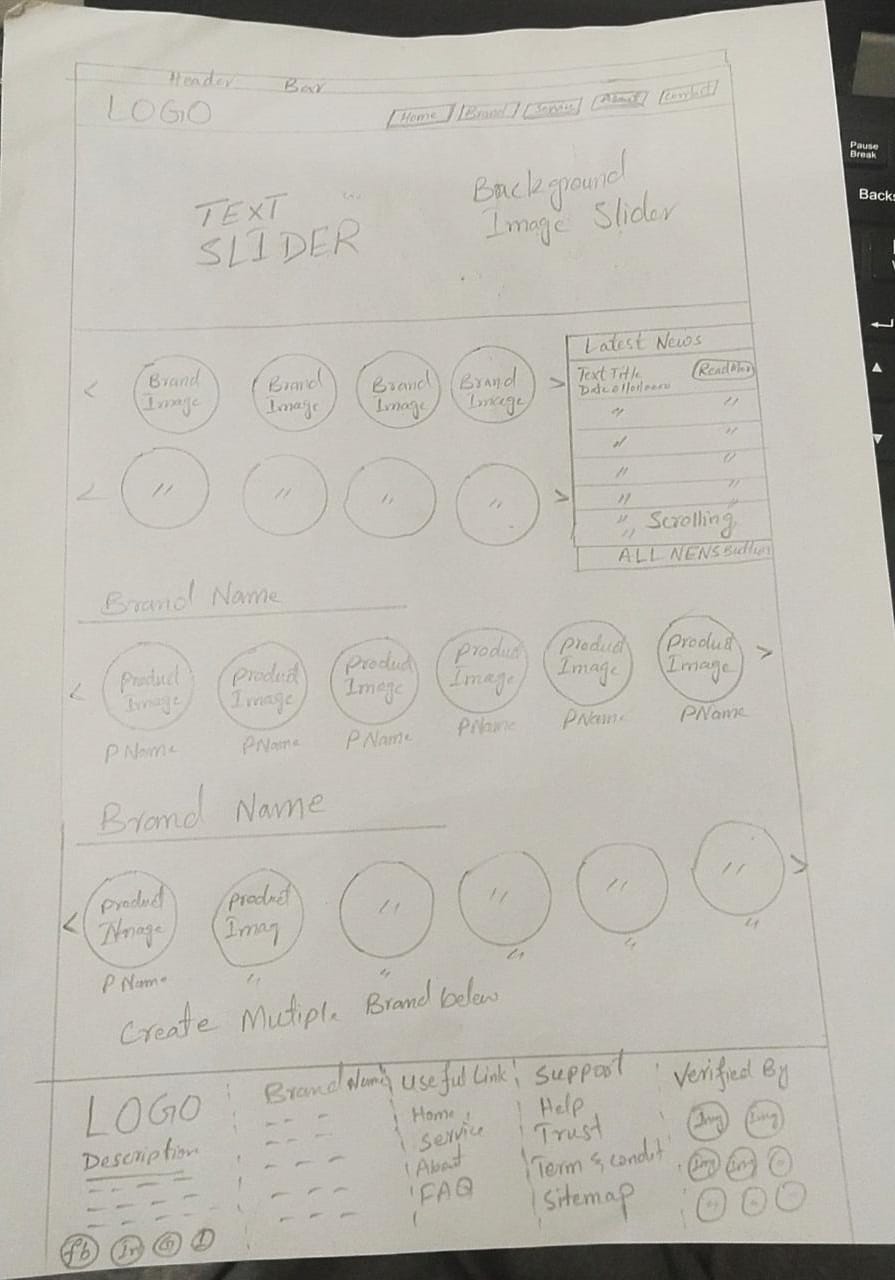 Header Bar
LOGO
Home Brand Service About Contact
TEXT
SLIDER
Background
Image Slider
< Brand Image Brand Image Brand Image Brand Image >
< " " " " >
Latest News
Text Title Read More
Date
" "
" "
" "
" "
" Scrolling "
"
ALL NEWS Button
Brand Name
< Product Image Product Image Product Image Product Image Product Image Product Image >
P Name P Name P Name P Name P Name P Name
Brand Name
< Product Image Product Imag " " " " >
P Name " " " " "
Create Mutiple Brand below
LOGO
Description
fb In G I
Brand Name
Useful Link
Home
Service
About
FAQ
Support
Help
Trust
Term & condit
Sitemap
Verified By
Img Img
Img Img "
" " "
Pause
Break
Backs